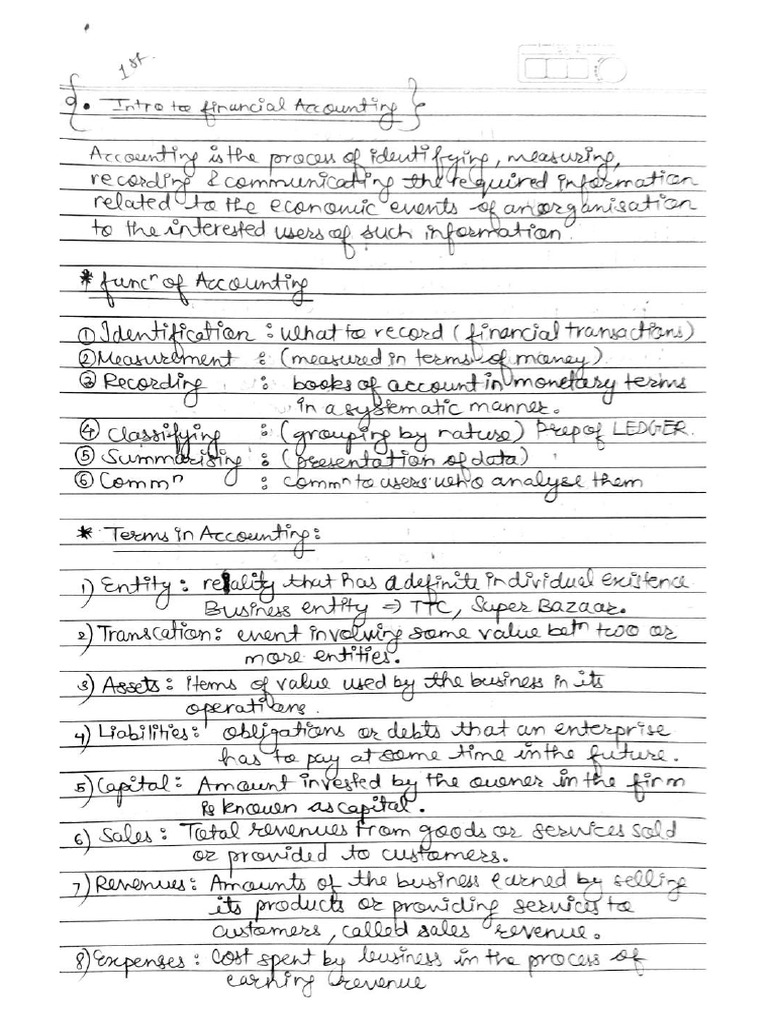 1st.
• Intro to financial Accounting
Accounting is the process of identifying, measuring,
recording & communicating the required information
related to the economic events of an organisation
to the interested users of such information.
* funcⁿ of Accounting
① Identification : what to record (financial transactions)
② Measurement : (measured in terms of money)
③ Recording : books of account in monetary terms
in a systematic manner.
④ Classifying : (grouping by nature) Prep of LEDGER.
⑤ Summarising : (presentation of data)
⑥ Commⁿ : commⁿ to users who analyse them
* Terms in Accounting :
1) Entity : reality that has a definite individual existence
Business entity ⇒ TTC, Super Bazaar.
2) Transcation : event involving some value betⁿ two or
more entities.
3) Assets : items of value used by the business in its
operations.
4) Liabilities : obligations or debts that an enterprise
has to pay at some time in the future.
5) Capital : Amount invested by the owner in the firm
is known as capital.
6) Sales : Total revenues from goods or services sold
or provided to customers.
7) Revenues : Amounts of the business earned by selling
its products or providing services to
customers, called sales revenue.
8) Expenses : Cost spent by business in the process of
earning revenue